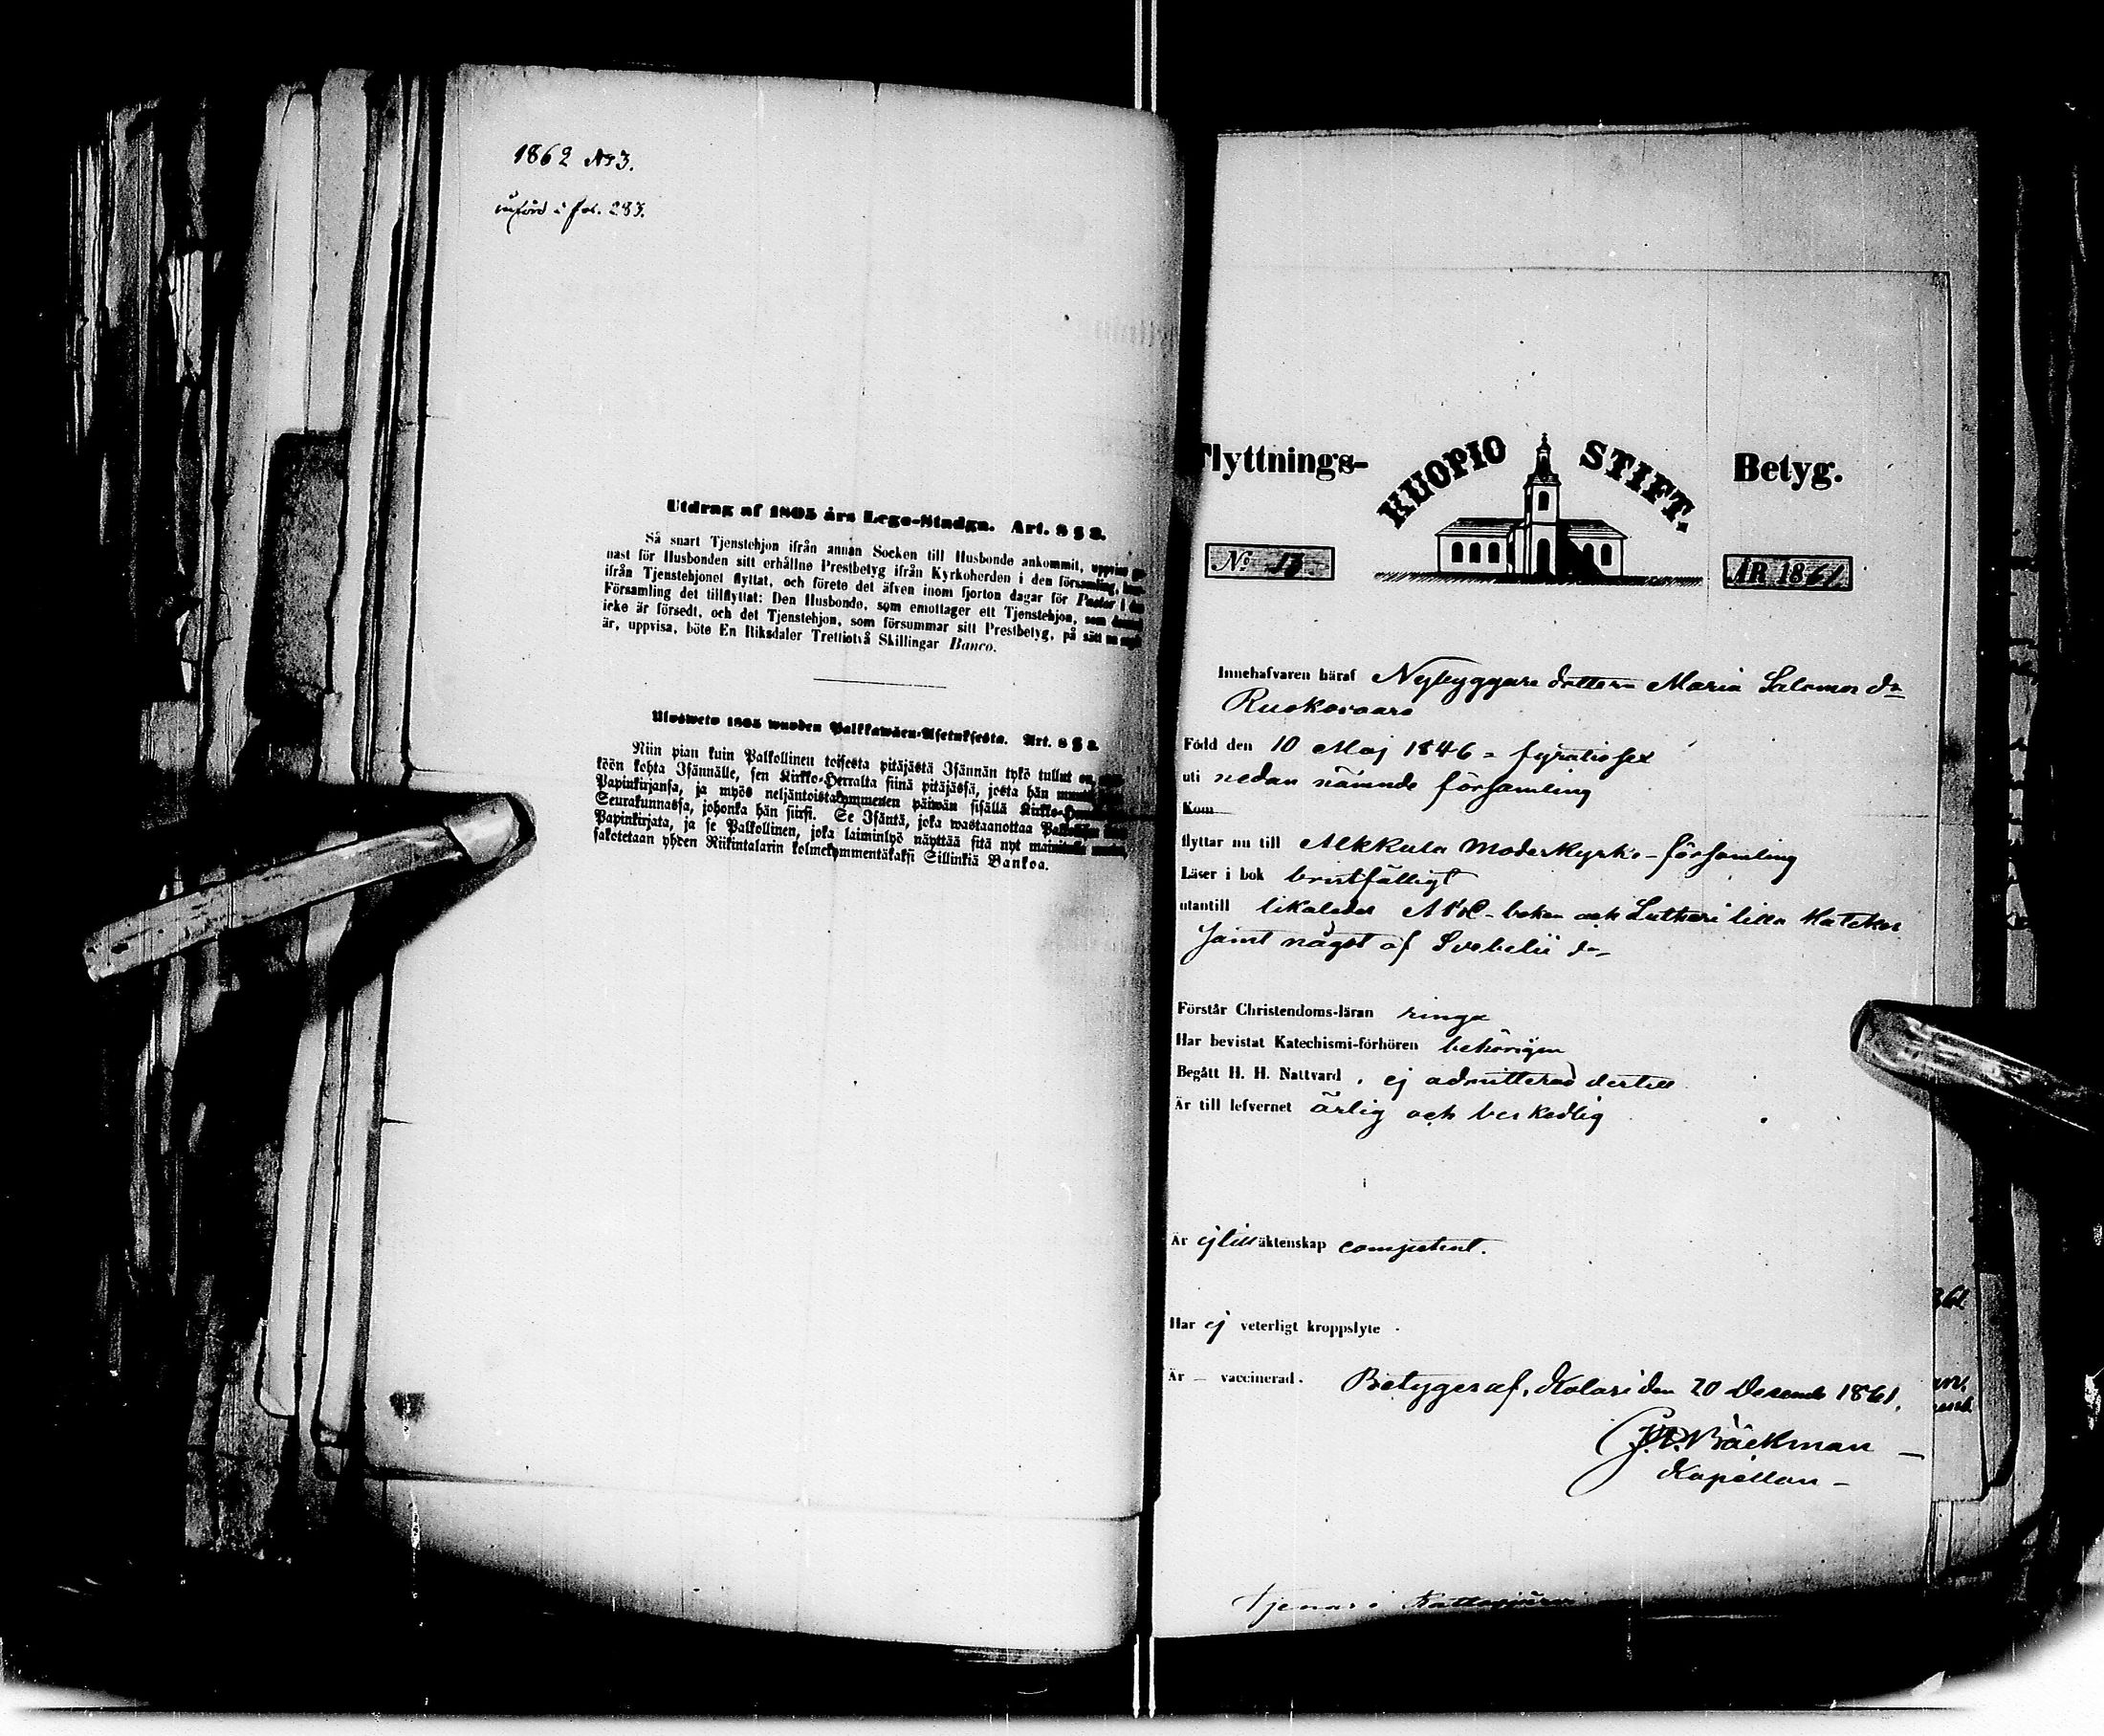 1862 No 3.
införd i fol. 283.
Utdrag af 1805 års Lego-Stadga. Art. 8 § 2.
Så snart Tjenstehjon ifrån annan Socken till Husbonde ankommit, uppvise
nast för Husbonden sitt erhållne Prestbetyg ifrån Kyrkoherden i den församling,
ifrån Tjenstehjonet flyttat, och förete det äfven inom fjorton dagar för Pastor i
Församling det tillflyttat: Den Husbonde, som emottager ett Tjenstehjon, som
icke är försedt, och det Tjenstehjon, som försummar sitt Prestbetyg, på sätt
är, uppvisa, böte En Riksdaler Trettiotvå Skillingar Banco.
Ulosweto 1805 wuoden Palkkawäen-Asetuksesta. Art. 8 § 2.
Niin pian kuin Palkollinen toisesta pitäjästä Isännän tykö tullut on,
köön kohta Isännälle, sen Kirkko-Herralta siinä pitäjässä, josta hän
Papinkirjansa, ja myös neljäntoistakymmenen päiwän sisällä
Seurakunnassa, johonka hän siirsi. Se Isäntä, joka wastaanottaa
Papinkirjata, ja se Palkollinen, joka laiminlyö näyttää sitä nyt
sakotetaan yhden Riikintalarin kolmekymmentäkaksi Sillinkiä Bankoa.
Flyttnings- KUOPIO STIFT. Betyg.
No 13. ÅR 1861.
Innehafvaren häraf Nybyggare dottern Maria Salomon dr
Ruokovaara
Född den 10 Maj 1846 = fyratiosex
uti nedan nämnde församling
Kom
flyttar nu till Alkkula Moderkyrko-församling
Läser i bok bristfälligt
utantill likaledes ABC-boken och Lutheri lilla Kateches
jämt något af Svebelii do
Förstår Christendoms-läran ringa
Har bevistat Katechismi-förhören behörigen
Begått H. H. Nattvard, ej admitterad dertill
Är till lefvernet ärlig och beskedlig
Är ej till äktenskap competent.
Har ej veterligt kroppslyte.
Är — vaccinerad. Betygas af, Kolari den 20 Decemb 1861.
Bäckman
Kapellan
tjenar i